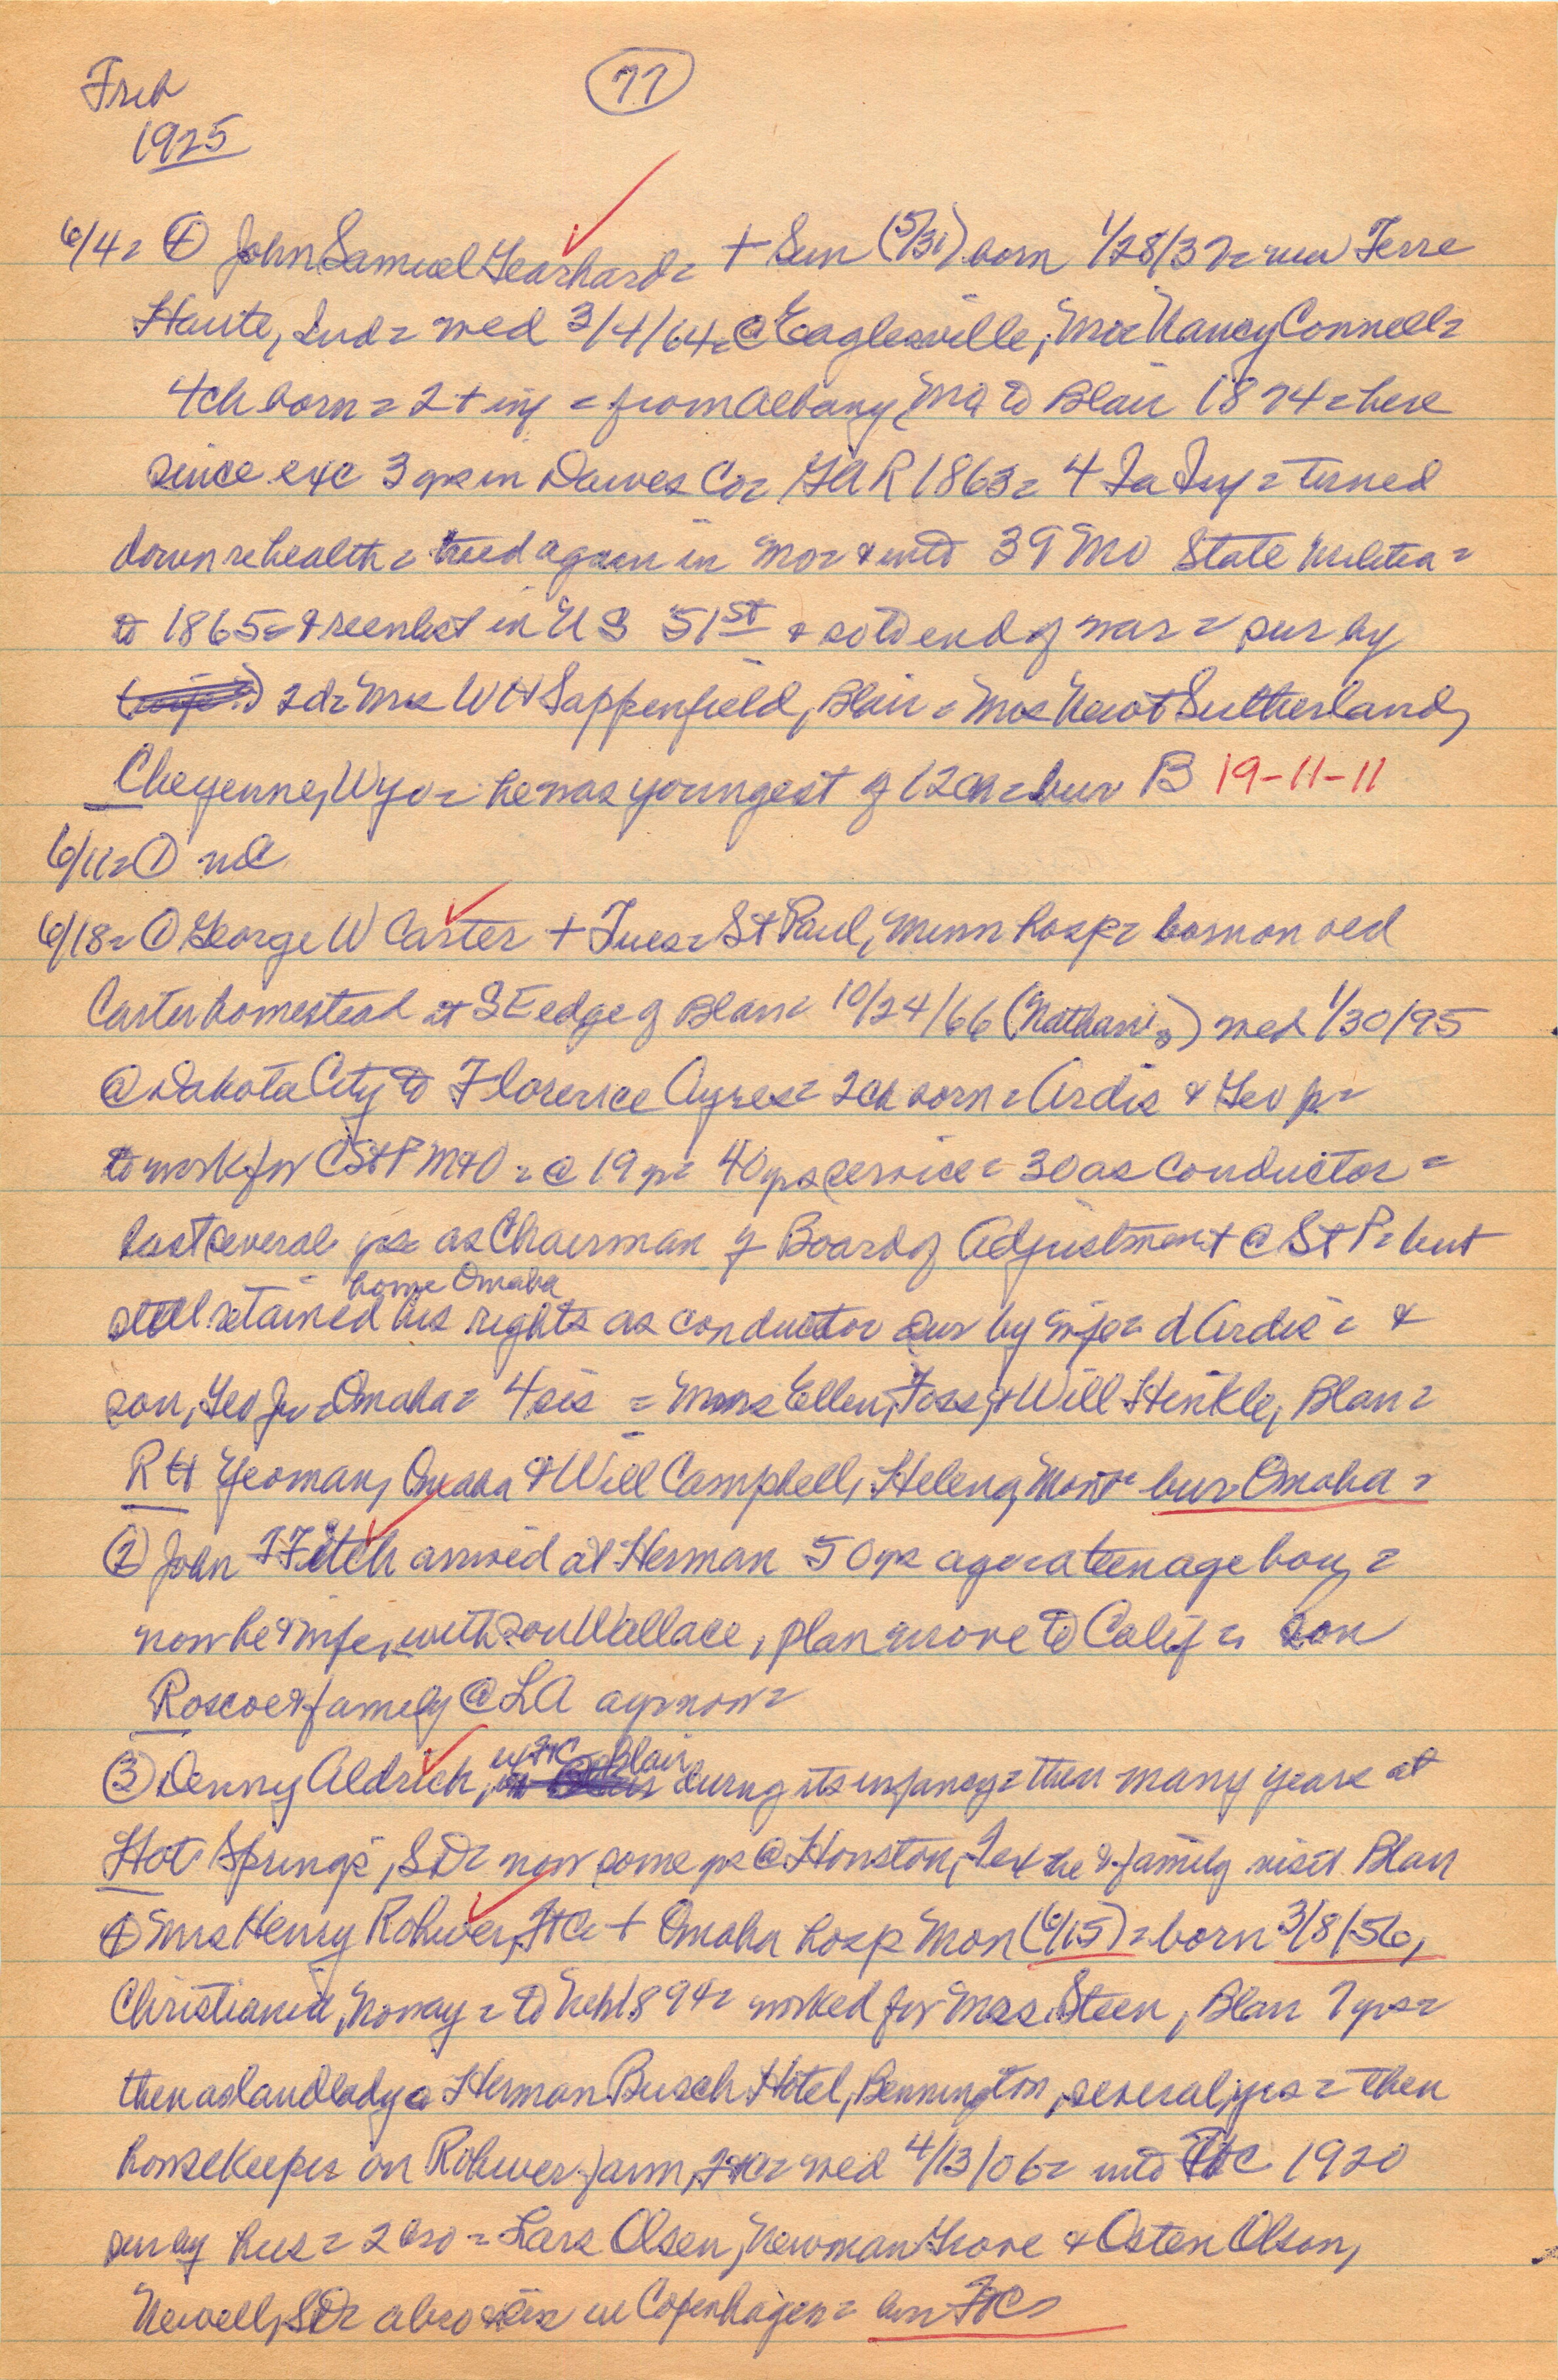 Trib
77
1925
6/4= ④ John Samuel Gearhard= + Sun (5/31) born 1/28/37= near Terre
Haute, Ind= wed 3/4/64= @ Eaglesville, Mo= Nancy Connell=
4 ch born = 2 + inf = from Albany, Mo to Blair 1874= here
since exc 3 yrs in Dawes Co= GAR 1863= 4 Ia Inf = turned
down re health = tried again in Mo= & into 39 Mo State Militia =
to 1865= & reenlist in US 51st & so to end of war = sur by
2 d= Mrs W H Sappenfield, Blair = Mrs Newt Sutherland,
Cheyenne, Wyo = he was youngest of 12 ch = bur B 19-11-11
6/11= ① nC
6/18= ① George W Carter + Tues= St Paul, Minn hosp= born on old
Carter homestead at SE edge of Blair= 10/24/66 (Nathan's) wed 1/30/95
@ Dakota City to Florence Ayres= 2 ch born = Ardis & Geo Jr=
to work for CStPM&O = @ 19 yr= 40 yrs service = 30 as conductor =
last several yrs= as Chairman of Board of Adjustment @ St P= but
home Omaha
still retained his rights as conductor sur by wife= d Ardis = &
son, Geo Jr= Omaha= 4 sis = Mmes Ellen Foss, & Will Hinkle, Blair=
R H Yeoman, Omaha & Will Campbell, Helena, Mont= bur Omaha =
② John F Fitch arrived at Herman 50 yrs ago= a teenage boy =
now he & wife, with son Wallace, plan move to Calif = son
Roscoe & family @ LA ayr now=
w/ FtC Blair
③ Denny Aldrich, during its infancy= then many years at
Hot Springs, SD= now some yrs @ Houston, Tex he & family visit Blair
④ Mrs Henry Rohwer, FtC= + Omaha hosp Mon (6/15) = born 3/8/56,
Christiania, Norway = to Neb 1894= worked for Mrs Steen, Blair 7 yrs=
then as landlady @ Herman Busch Hotel, Bennington, several yrs = then
housekeeper on Rohwer farm, FtC= wed 4/13/06= into FtC 1920
sur by hus= 2 bro = Lars Olsen, Newman Grove & Osten Olson,
Newell, SD= a bro & sis in Copenhagen= bur FtC=